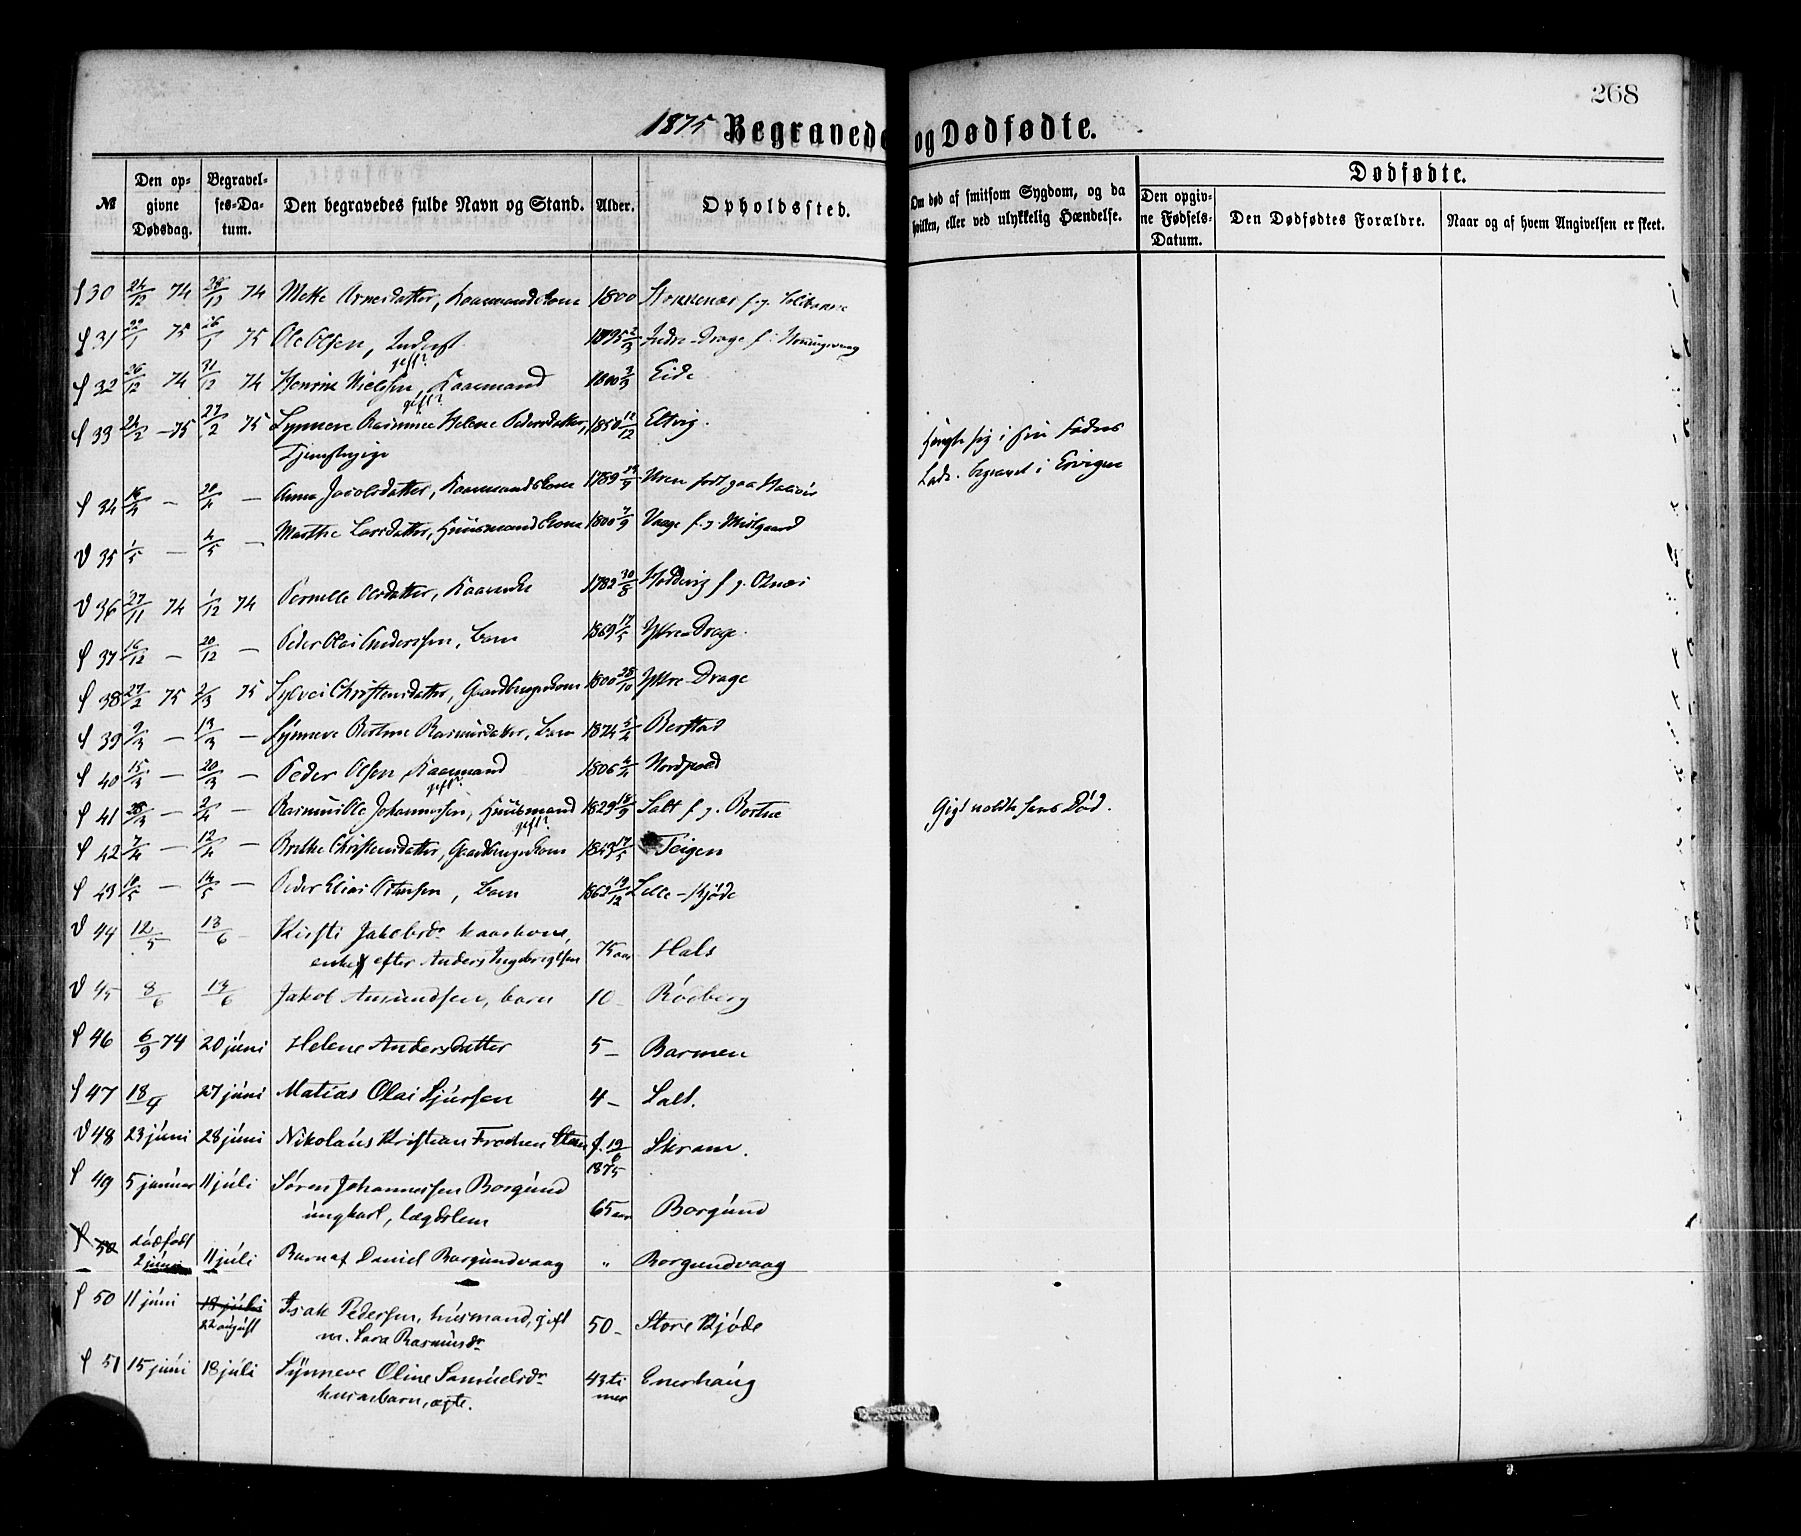 268
1875 Begravede og Dødfødte.
№ Den opgivne Dødsdag. Begravelses-Datum. Den begravedes fulde Navn og Stand. Alder. Opholdssted. Om død af smitsom Sygdom, og da hvilken, eller ved ulykkelig Hændelse. Dødfødte. Den opgivne Fødsels-Datum. Den Dødfødtes Forældre. Naar og af hvem Angivelsen er skeet.
S 30 24/12 74 74 Mette Arnesdatter, Kaarmandskone 1800
S 31 22/1 75 26/1 75 Ole Olsen, Inderst gift? Indre-Drage f.
S 32 26/12 74 31/12 74 Nielsen, Kaarmand gift? 1800 Eide
S 33 24/2 -75 27/2 75 Synneve Rasmine Helene Pedersdatter, 1850 Eltvig. Hængte sig i sin Faders
Lade. begravet i Ervigen
S 34 16/4 — 20/4 — Anna Jacobsdatter, Kaarmandskone 1789
V 35 1/5 — 4/5 — Marthe Larsdatter, Huusmandskone 1800 7/9 Vaage f. g.
V 36 27/11 74 1/12 74 Pernille Olsdatter, Kaarenke 1782 30/8 Hoddevig f. g.
S 37 16/12 — 20/12 — Peder Olai Anderssen, Barn 1869 Ytre-Drage.
S 38 27/2 75 2/3 75 Christensdatter, Gaardbrugerkone 1800 28/10 Ytre-Drage
S 39 9/3 — 13/3 — Synneve Rasmusdatter, Barn 1874 Berstad
S 40 15/3 — 20/3 — Peder Olsen, Kaarmand gift? 1806 Nordpoll
S 41 28/3 — 2/4 — Johannessen, Huusmand gift? 1829 18/9 Salt f. g. Bortne Gigt voldte hans Død.
S 42 7/4 — 12/4 — Brethe Christensdatter, Gaardbrugerkone 1843 Teigen
S 43 10/5 — 14/5 — Peder Elias Barn 1862 Lille-Kjøde
V 44 12/5 13/6 - Kirsti Jakobsdr kaarkone,
enke efter Anders Ingebrigtsen 75 aar Hals
V 45 8/6 13/6 Jakob Amundsen, barn 10 - Rødberg
S 46 6/9 74 20 júni Helene Andersdatter 5 - Barmen
S 47 18/9 27 júni Matias Olai Sjursen 4 - Salt.
V 48 23 júni 28 júni Nikolaus Kristian Frochen f. 19/6 1875 Skram.
S 49 5 januar 11 júli Søren Johannessen Borgund
ungkarl, lægdslem 65 aar Borgund
S 50 dødfødt 2 júni 11 júli Barn af Daniel Borgundvaag " Borgundvaag
S 50 11 júni 18 júli 22 august Isak Pedersen, húsmand, gift
m. Sara Rasmusdr 50 - Store Kjøde
S 51 15 júni 18 júli Synneve Oline Samúelsdr
barn, ægte. 43 timer Enerhaug